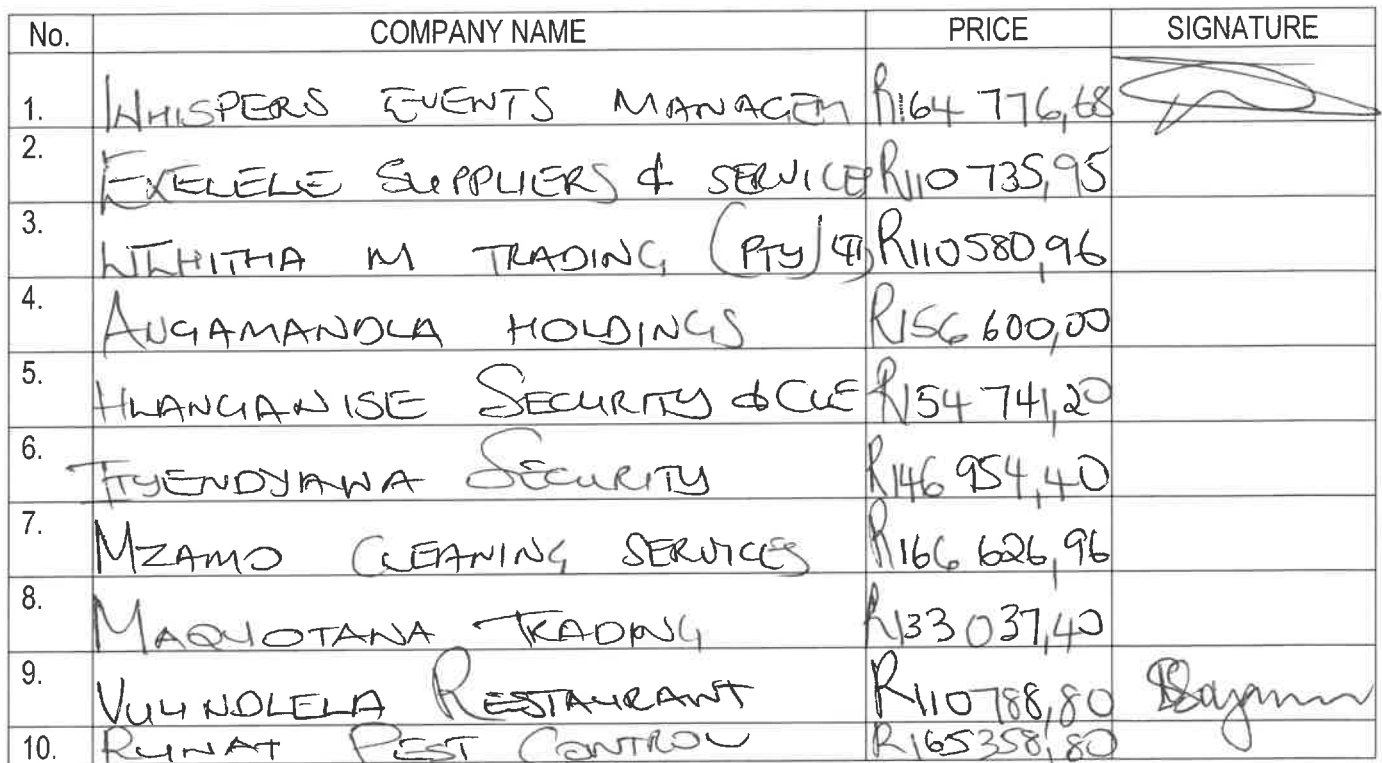 No. COMPANY NAME PRICE SIGNATURE
1. WHISPERS EVENTS MANAGEM R164 776,68
2. EXELELE SUPPLIERS & SERVICE R110 735,95
3. M TRADING (PTY) LTD R110580,96
4. AUGAMANDLA HOLDINGS R156 600,00
5. HLANGANISE SECURITY & CLE R154 741,20
6. ITYENDYAWA SECURITY R146 954,40
7. MZAMO CLEANING SERVICES R166 626,96
8. MAQUOTANA TRADING R133 037,40
9. VULINDLELA RESTAURANT R110788,80
10. RUNAT PEST CONTROL R165358,80